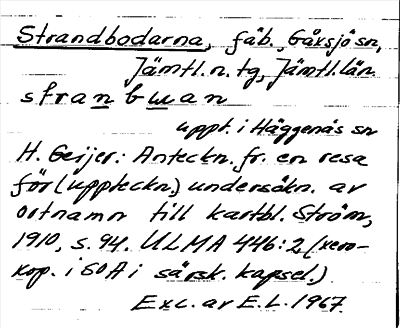 Strandbodarna, fäb., Gåxsjö sn,
Jämtl. n. tg, Jämtl. län.
stranbuan
uppt. i Häggenås sn
H. Geijer: Anteckn. fr. en resa
för (uppteckn.) undersökn. av
ortnamn till kartbl. Ström,
1910, s. 94. ULMA 446:2 (xero-
kop. i SOA i särsk. kapsel.)
Exc. av E.L. 1967.